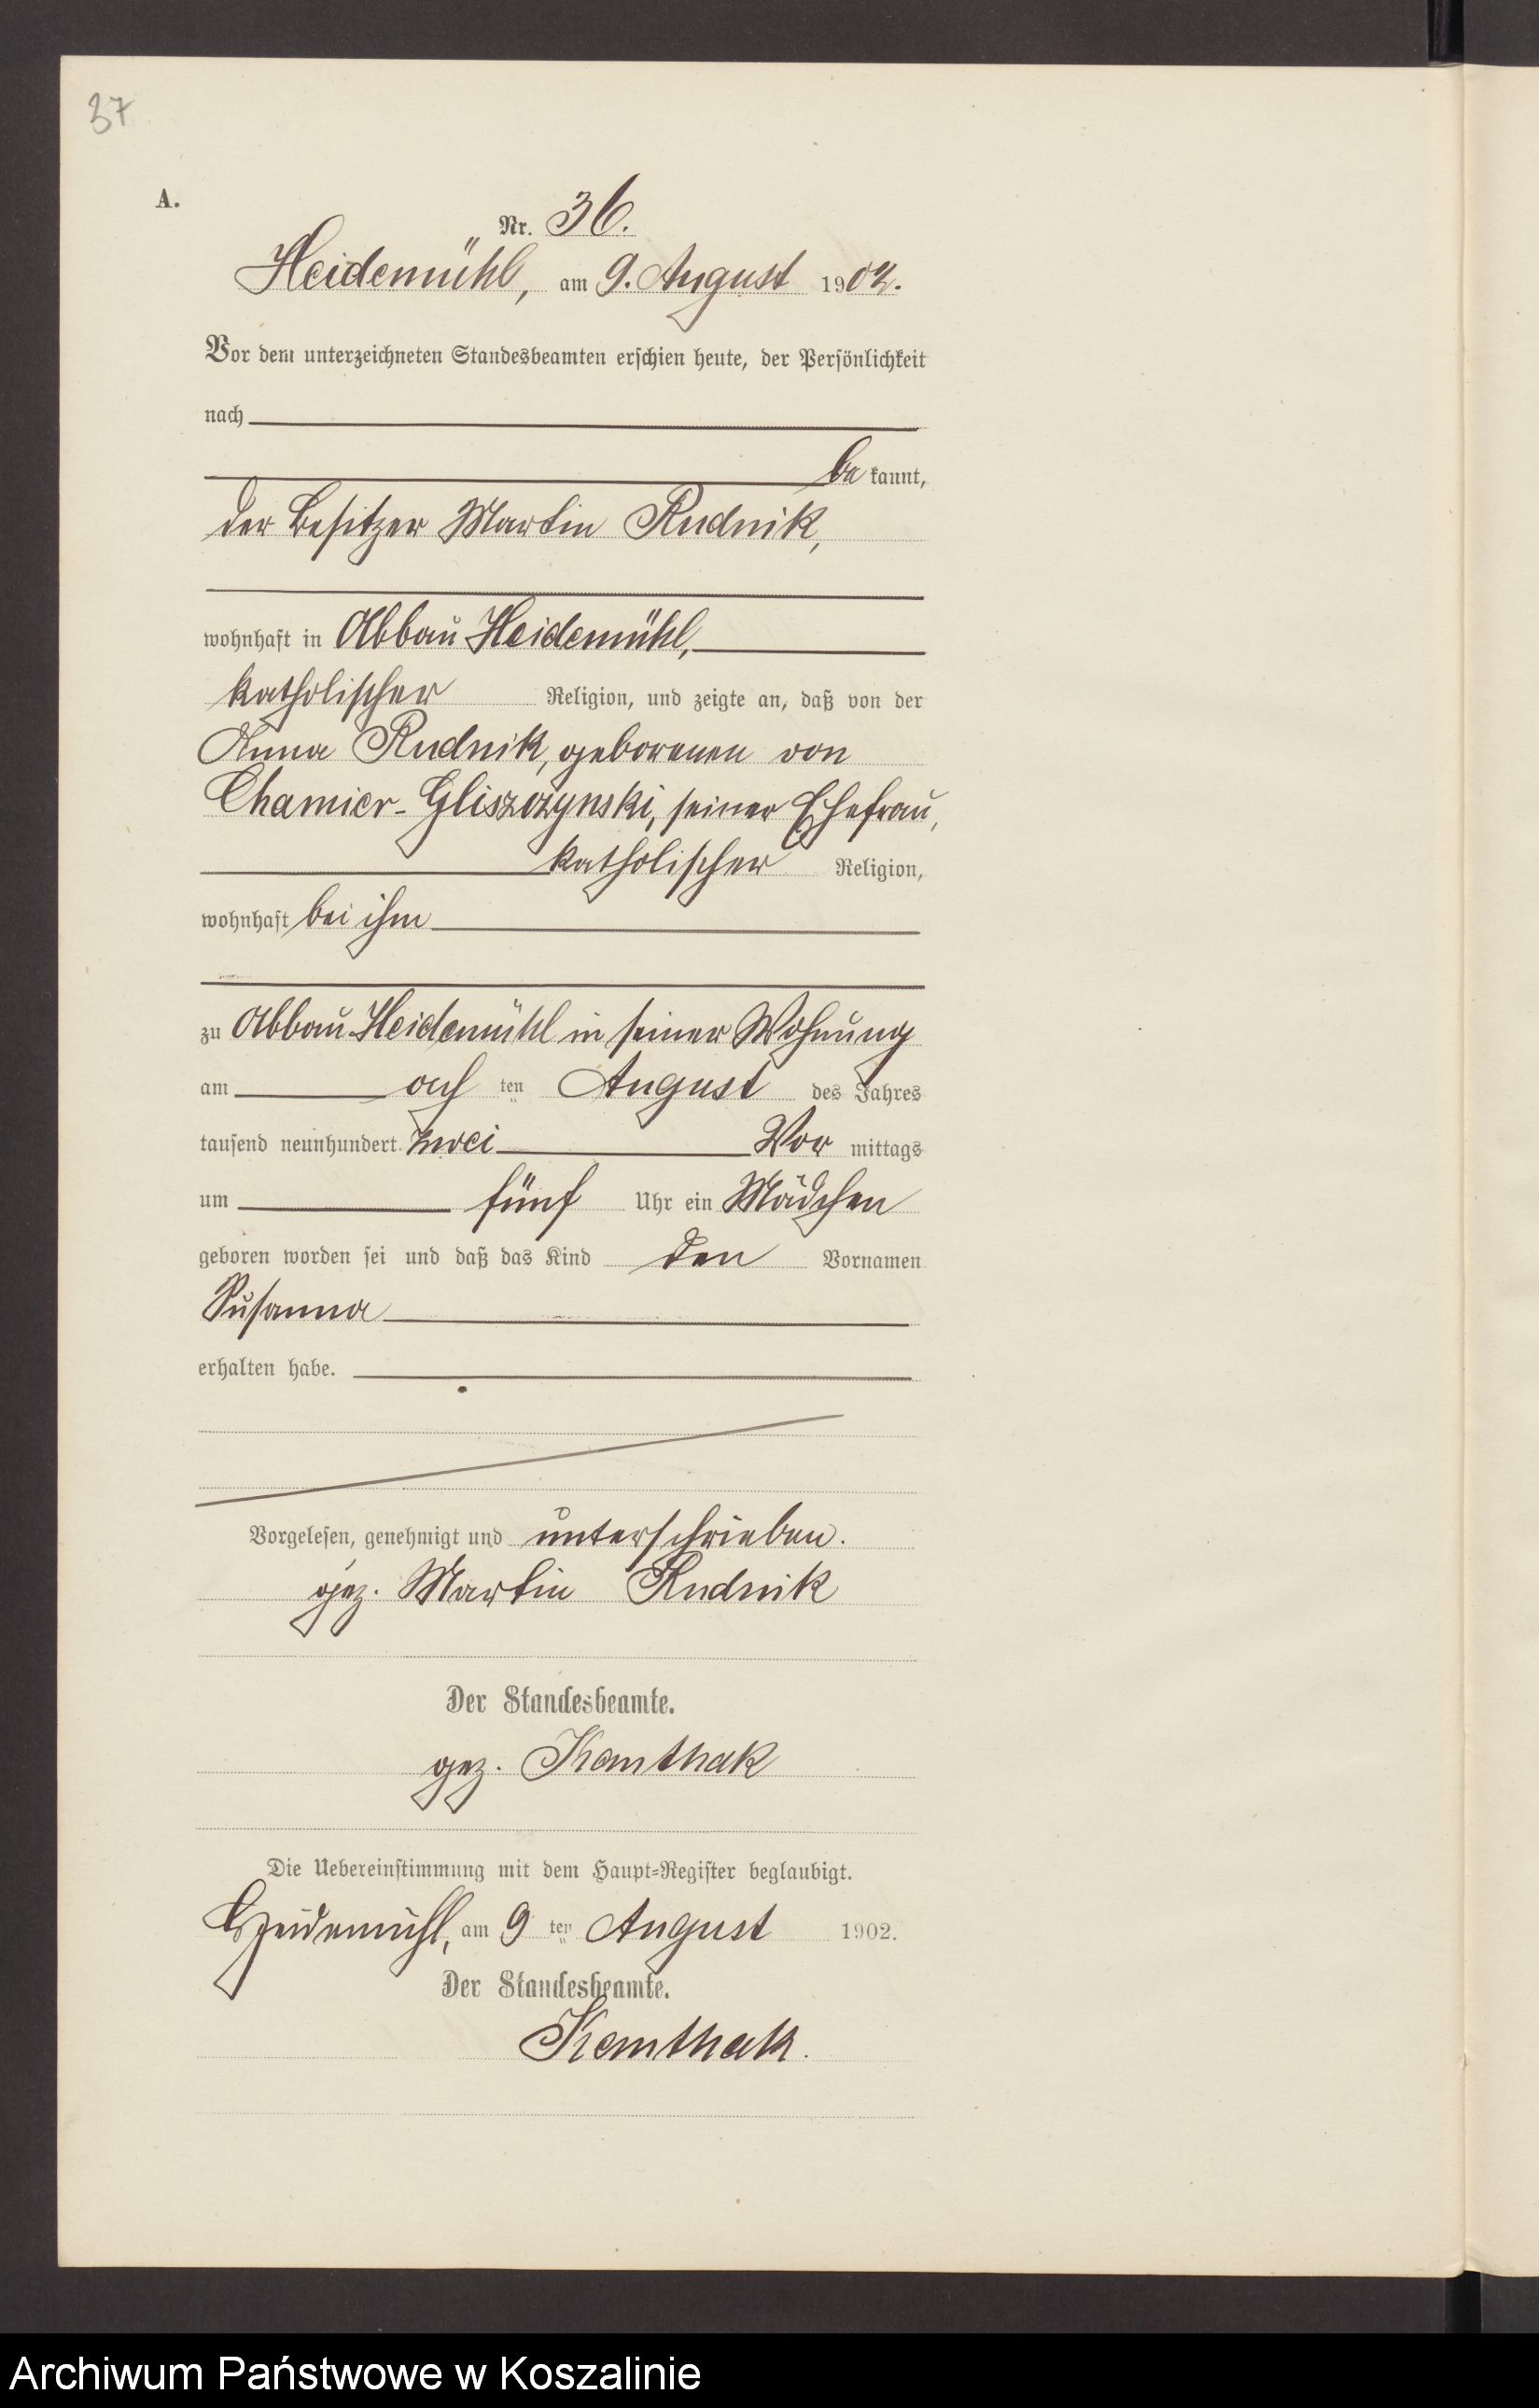 37
A.
Nr. 36.
Heidemühl, am 9. August 1902.
Vor dem unterzeichneten Standesbeamten erschien heute, der Persönlichkeit
nach
be kannt,
der Besitzer Martin Rudnik,
wohnhaft in Abbau Heidemühl,
katholischer Religion, und zeigte an, daß von der
Anna Rudnik, geborenen von
Chamier-Gliszczynski, seiner Ehefrau,
katholischer Religion,
wohnhaft bei ihm
zu Abbau Heidemühl in seiner Wohnung
am ach ten August des Jahres
tausend neunhundert zwei Vor mittags
um fünf Uhr ein Mädchen
geboren worden sei und daß das Kind den Vornamen
Susanna
erhalten habe.
Vorgelesen, genehmigt und unterschrieben.
gez. Martin Rudnik
Der Standesbeamte.
gez.
Die Uebereinstimmung mit dem Haupt-Register beglaubigt.
Heidemühl, am 9 ten August 1902.
Der Standesbeamte.
Archiwum Państwowe w Koszalinie